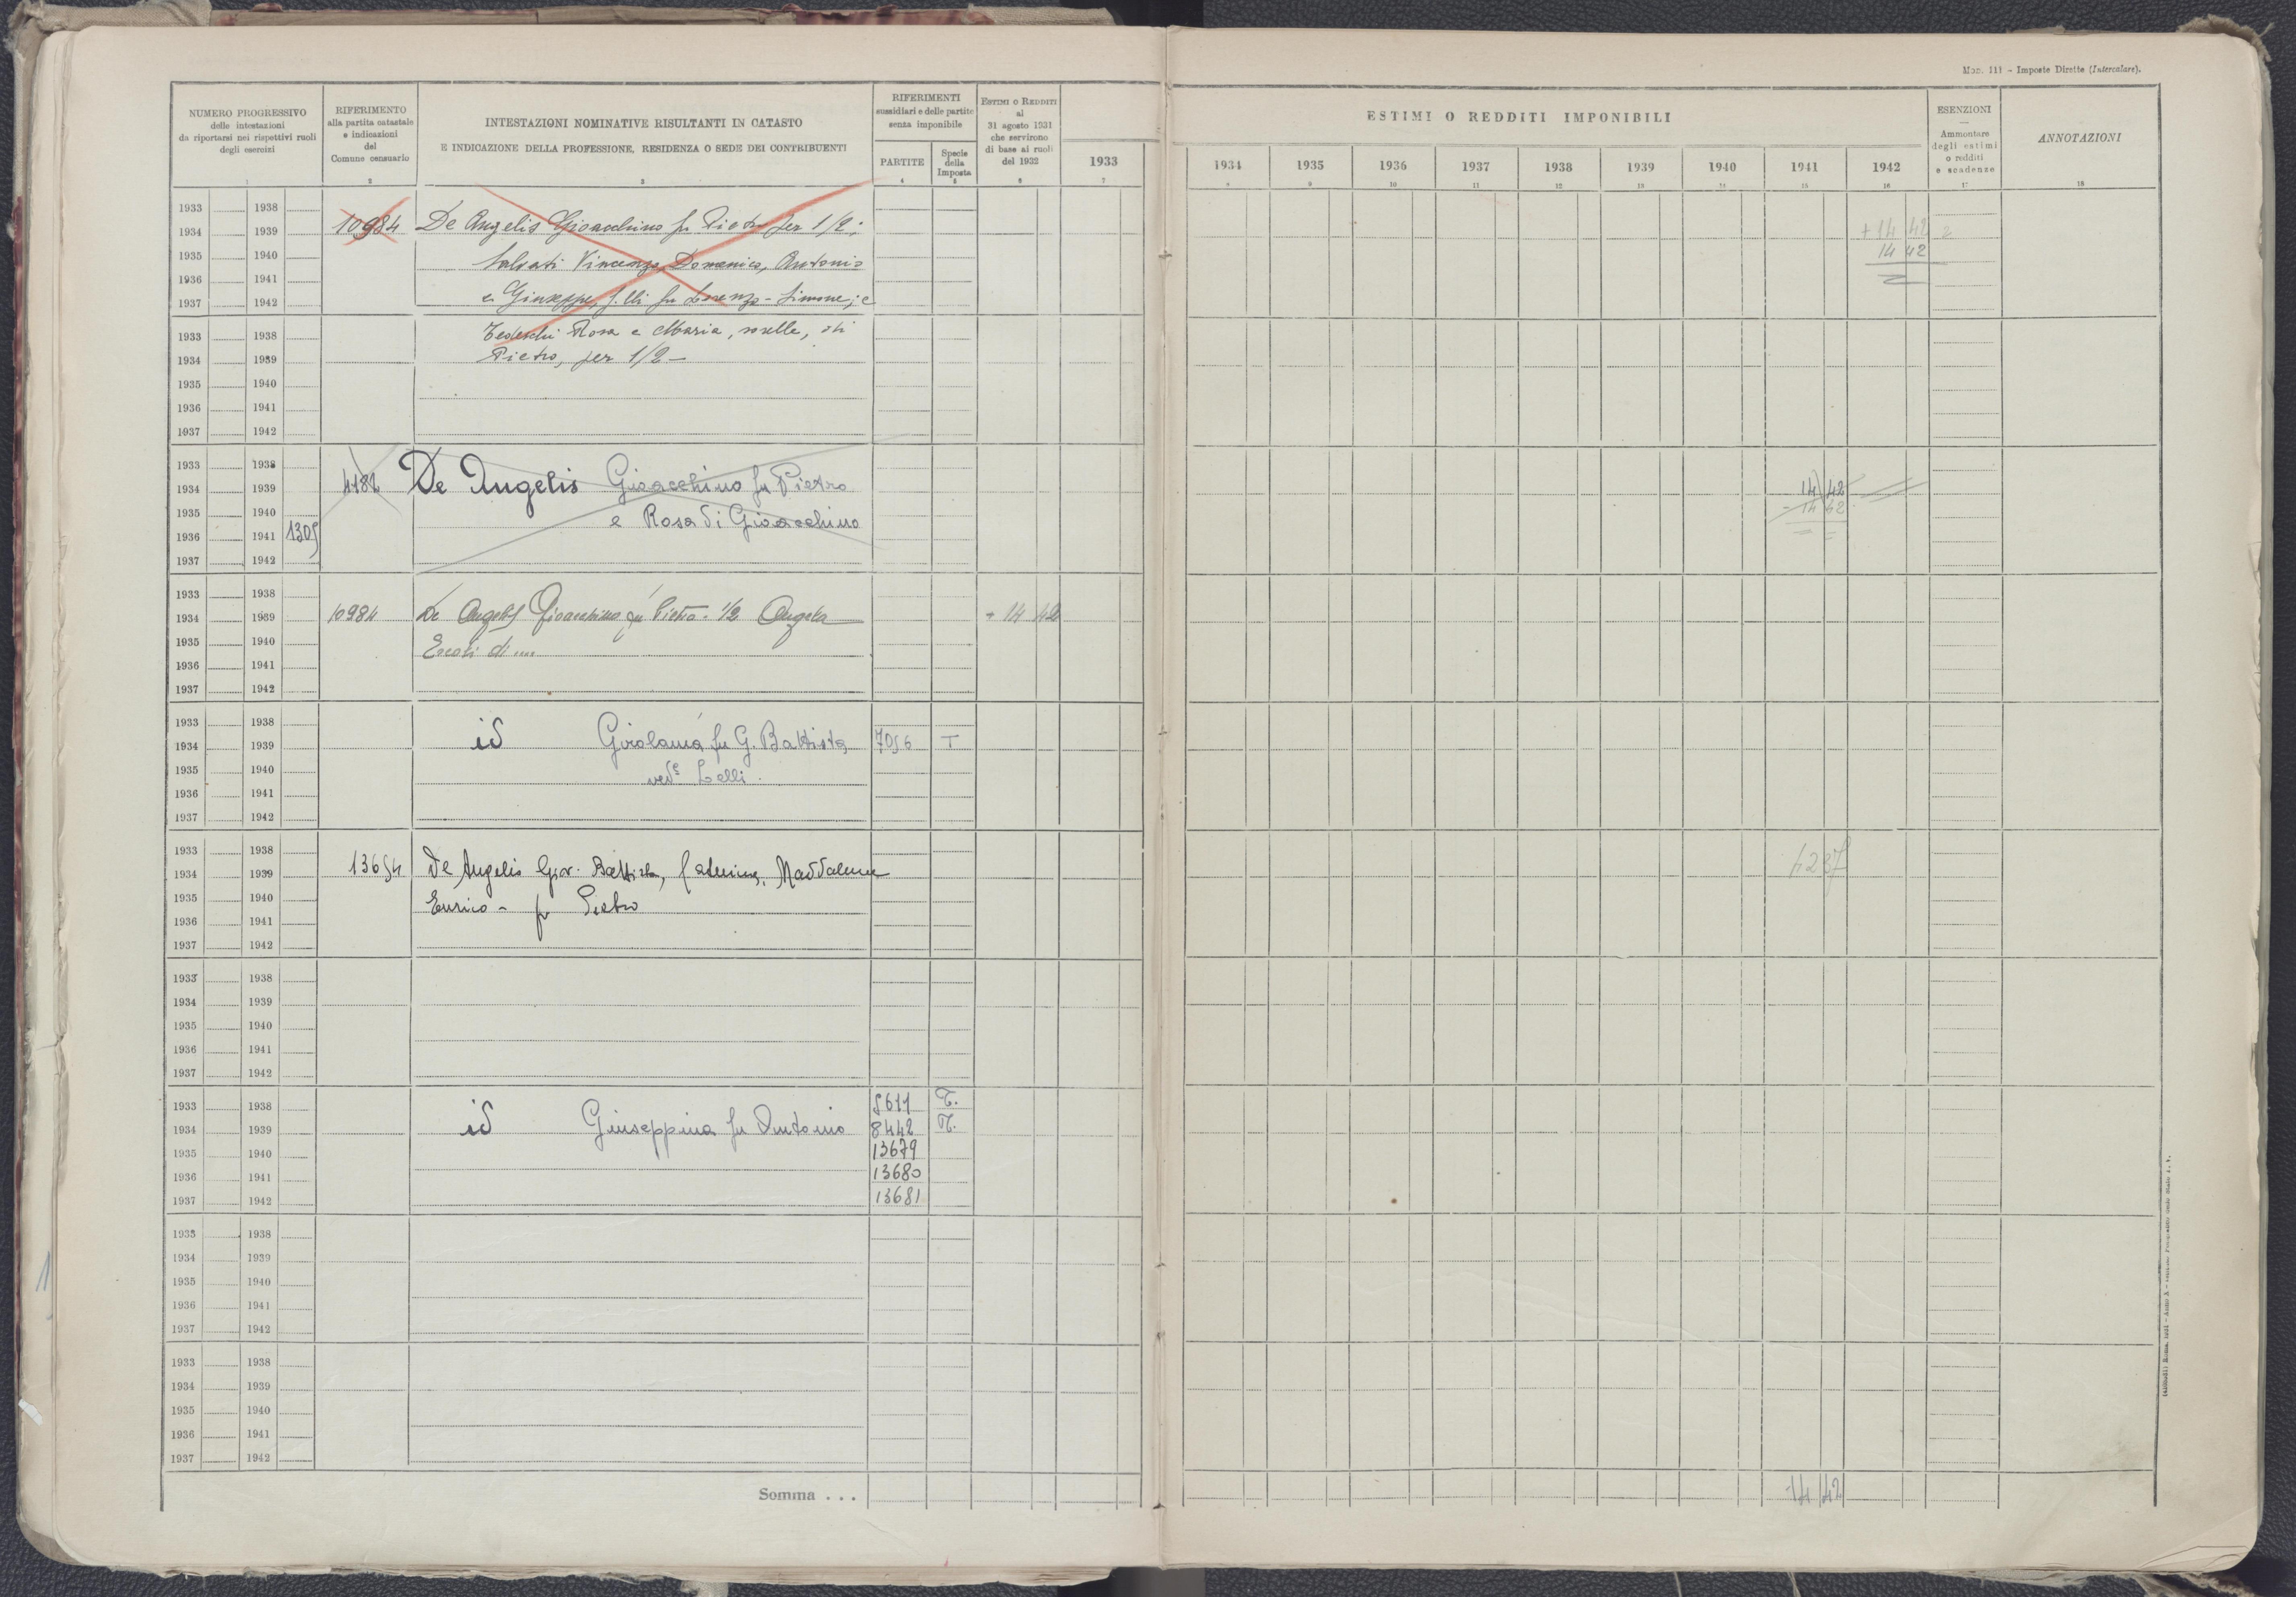 Mod. 111 - Imposte Dirette (Intercalare).
NUMERO PROGRESSIVO
delle intestazioni
da riportarsi nei rispettivi ruoli
degli esercizi
1
RIFERIMENTO
alla partita catastale
e indicazioni
del
Comune censuario
2
INTESTAZIONI NOMINATIVE RISULTANTI IN CATASTO
E INDICAZIONE DELLA PROFESSIONE, RESIDENZA O SEDE DEI CONTRIBUENTI
3
RIFERIMENTI
sussidiari e delle partite
senza imponibile
PARTITE
4
Specie
della
Imposta
5
ESTIMI O REDDITI
al
31 agosto 1931
che servirono
di base ai ruoli
del 1932
6
1933
7
ESTIMI O REDDITI IMPONIBILI
1934 1935 1936 1937 1938 1939 1940 1941 1942
8 9 10 11 12 13 14 15 16
ESENZIONI
Ammontare
degli estimi
o redditi
e scadenze
17
ANNOTAZIONI
18
1933 1938
1934 1939 10984 De Angelis Gioacchino fu Pietro per 1/2; + 14 42 2
1935 1940 Salvati Vincenzo, Domenico, Antonio 14 42
1936 1941 e Giuseppe, f.lli fu Lorenzo - Simone; e
1937 1942
1933 1938 Tedeschi Rosa e Maria, sorelle, di
1934 1939 Pietro, per 1/2 -
1935 1940
1936 1941
1937 1942
1933 1938
1934 1939 4182 De Angelis Gioacchino fu Pietro 14 42
1935 1940 e Rosa di Gioacchino - 14 42
1936 1941 1305
1937 1942
1933 1938
1934 1939 10984 De Angelis Gioacchino fu Pietro - 1/2 Angela + 14 42
1935 1940 Eredi di ....
1936 1941
1937 1942
1933 1938
1934 1939 id Girolama fu G. Battista 7056 T
1935 1940 ved. Lelli.
1936 1941
1937 1942
1933 1938
1934 1939 13654 De Angelis Giov. Battista, Caterina, Maddalena 4237
1935 1940 Enrico - fu Pietro
1936 1941
1937 1942
1933 1938
1934 1939
1935 1940
1936 1941
1937 1942
1933 1938 5611 T.
1934 1939 id Giuseppina fu Antonio 8442 T.
1935 1940 13679
1936 1941 13680
1937 1942 13681
1933 1938
1934 1939
1935 1940
1936 1941
1937 1942
1933 1938
1934 1939
1935 1940
1936 1941
1937 1942
Somma . . . 14 42